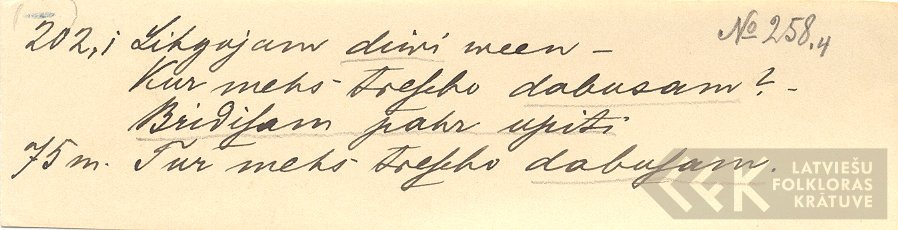 202,i Lihgojam diwi ween – № 258,4
Kur mehs trescho dabusam? –
Bridisam pahr upiti
75 m. Tur mehs trescho dabusam.
LATVIEŠU
FOLKLORAS
KRĀTUVE